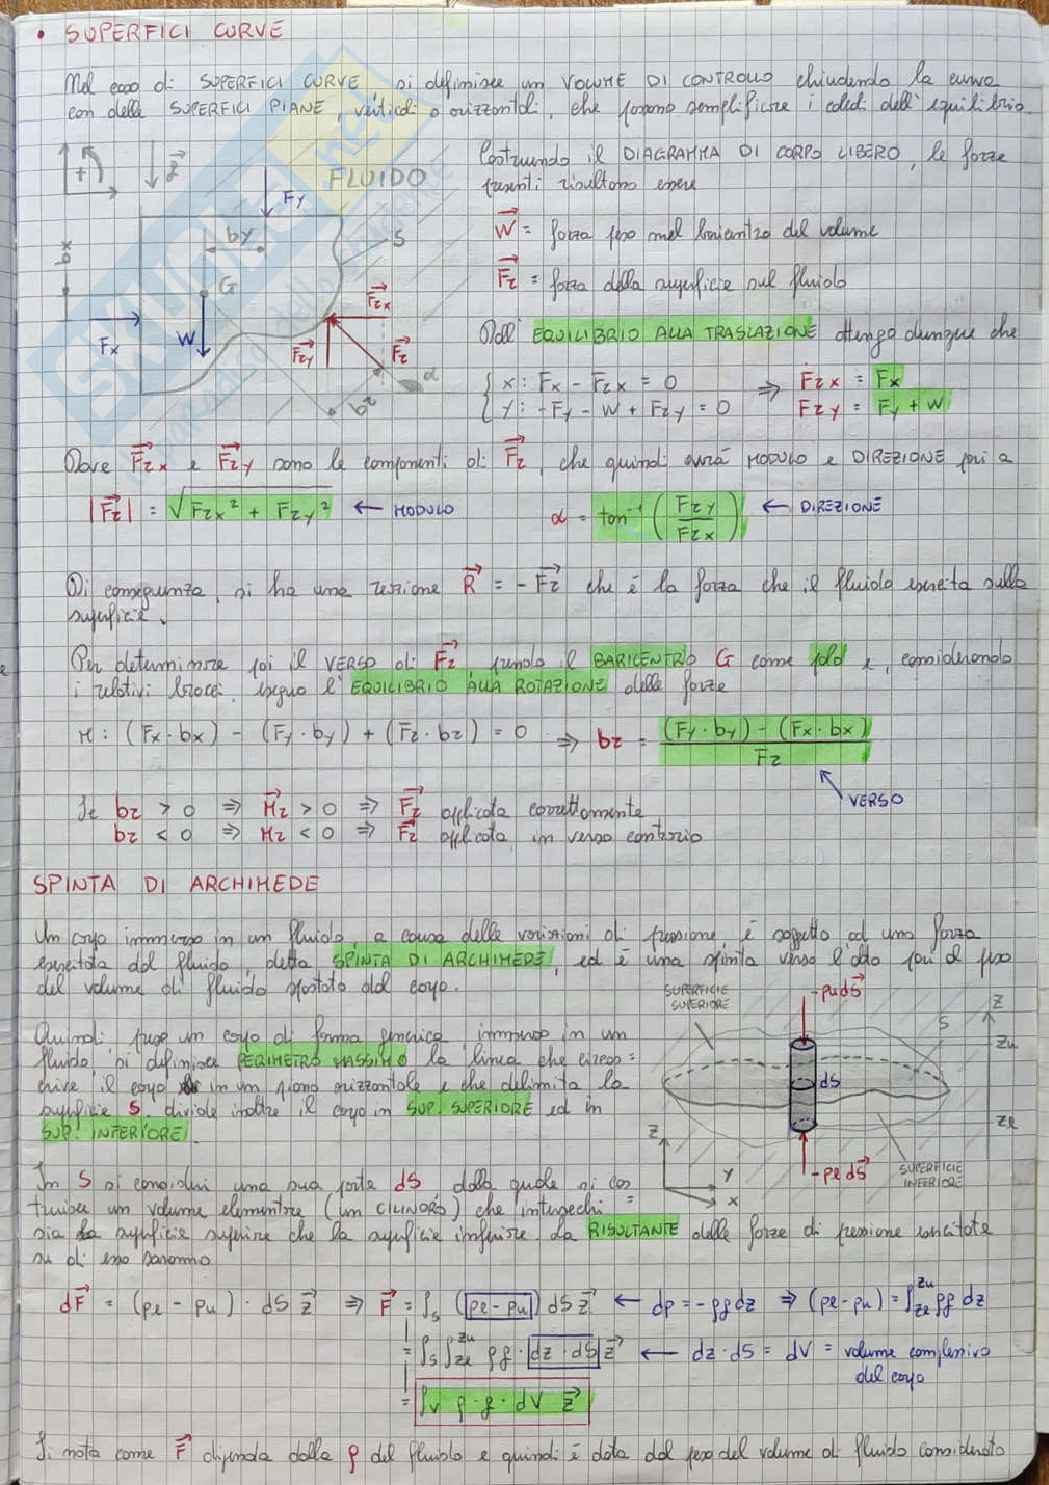 • SUPERFICI CURVE
Nel caso di SUPERFICI CURVE, si definisce un VOLUME DI CONTROLLO chiudendo la curva
con delle SUPERFICI PIANE, verticali o orizzontali, che possono semplificare i calcoli dell'equilibrio
Costruendo il DIAGRAMMA DI CORPO LIBERO, le forze
presenti risultano essere
FLUIDO
Fy
by
S
bx
G
Fx
W
Fzx
Fzy
Fz
α
bz
W = forza peso nel baricentro del volume
Fz = forza della superficie sul fluido
Dall'EQUILIBRIO ALLA TRASLAZIONE ottengo dunque che
x: Fx - Fzx = 0 ⇒ Fzx = Fx
y: -Fy - W + Fzy = 0 Fzy = Fy + W
Dove Fzx e Fzy sono le componenti di Fz, che quindi avrà MODULO e DIREZIONE pari a
|Fz| = √Fzx² + Fzy² ← MODULO α = tan⁻¹ (Fzy / Fzx) ← DIREZIONE
Di conseguenza, si ha una reazione R = -Fz che è la forza che il fluido esercita sulla
superficie.
Per determinare poi il VERSO di Fz, prendo il BARICENTRO G come polo e, considerando
i relativi bracci, eseguo l'EQUILIBRIO ALLA ROTAZIONE delle forze
M: (Fx·bx) - (Fy·by) + (Fz·bz) = 0 ⇒ bz = (Fy·by) - (Fx·bx) / Fz
VERSO
Se bz > 0 ⇒ Mz > 0 ⇒ Fz applicata correttamente
bz < 0 ⇒ Mz < 0 ⇒ Fz applicata in verso contrario
SPINTA DI ARCHIMEDE
Un corpo immerso in un fluido, a causa delle variazioni di pressione, è soggetto ad una forza
esercitata dal fluido, detta SPINTA DI ARCHIMEDE, ed è una spinta verso l'alto pari al peso
del volume di fluido spostato dal corpo.
Quindi preso un corpo di forma generica immerso in un
fluido, si definisce PERIMETRO MASSIMO la linea che circos=
crive il corpo in un piano orizzontale e che delimita la
superficie S, divide inoltre il corpo in SUP. SUPERIORE ed in
SUP. INFERIORE.
SUPERFICIE
SUPERIORE
-pudS
S
Z
Zu
dS
Ze
Z
Y
X
-pedS
SUPERFICIE
INFERIORE
In S si consideri una sua parte dS dalla quale si cos=
truisce un volume elementare (un CILINDRO) che intersechi
sia la superficie superiore che la superficie inferiore. La RISULTANTE delle forze di pressione esercitate
su di esso saranno
dF = (pe - pu) dS z ⇒ F = ∫s (pe - pu) dS z ← dp = -ρg dz ⇒ (pe - pu) = ∫ze zu ρg dz
= ∫s ∫ze zu ρg · dz · dS z ← dz · dS = dV = volume complessivo
del corpo
= ∫v ρ·g·dV z
Si nota come F dipenda dalla ρ del fluido e quindi è data dal peso del volume di fluido considerato